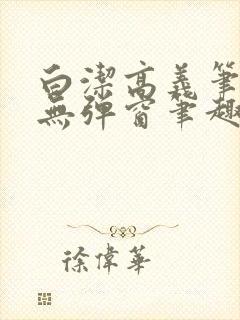 白潔高義筆
無彈窗筆趣
徐偉華